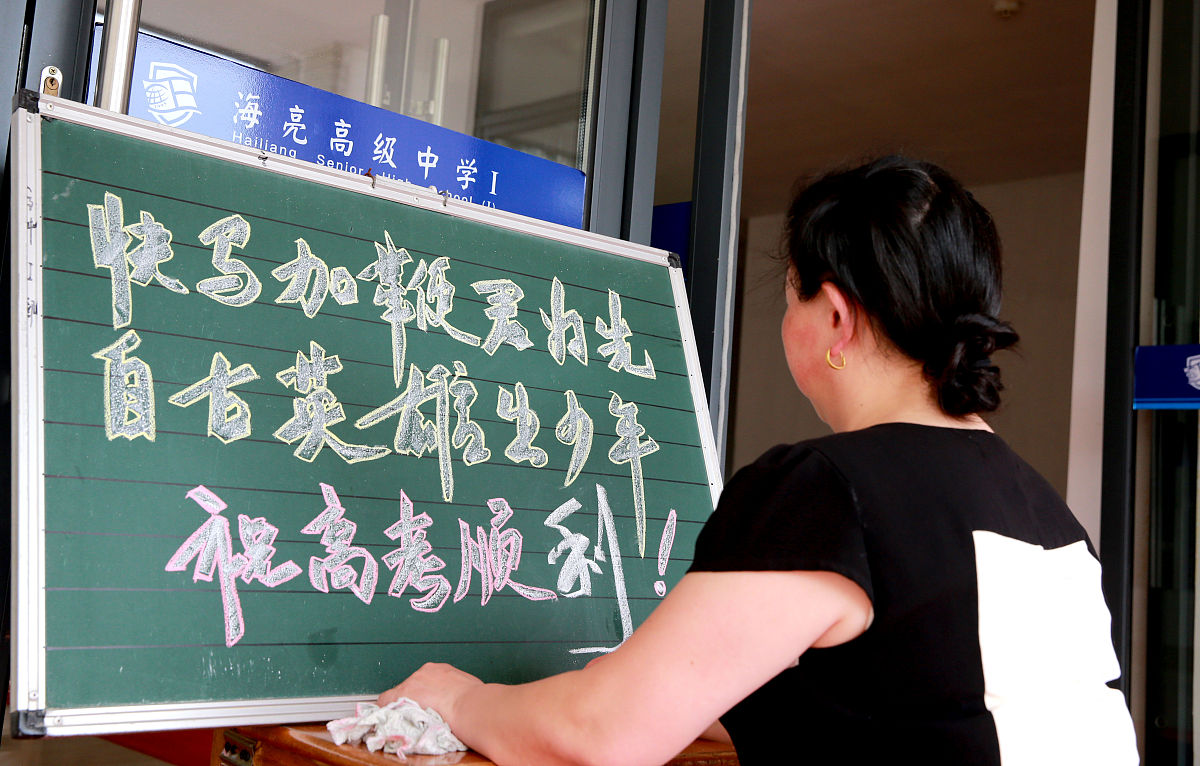 海亮高级中学I
Hailiang Senior High School (I)
快马加鞭君为先
自古英雄出少年
祝高考顺利!